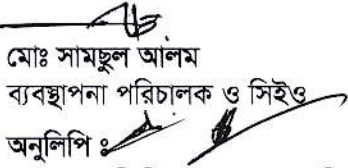 মোঃ সামছুল আলম
ব্যবস্থাপনা পরিচালক ও সিইও
অনুলিপি ঃ